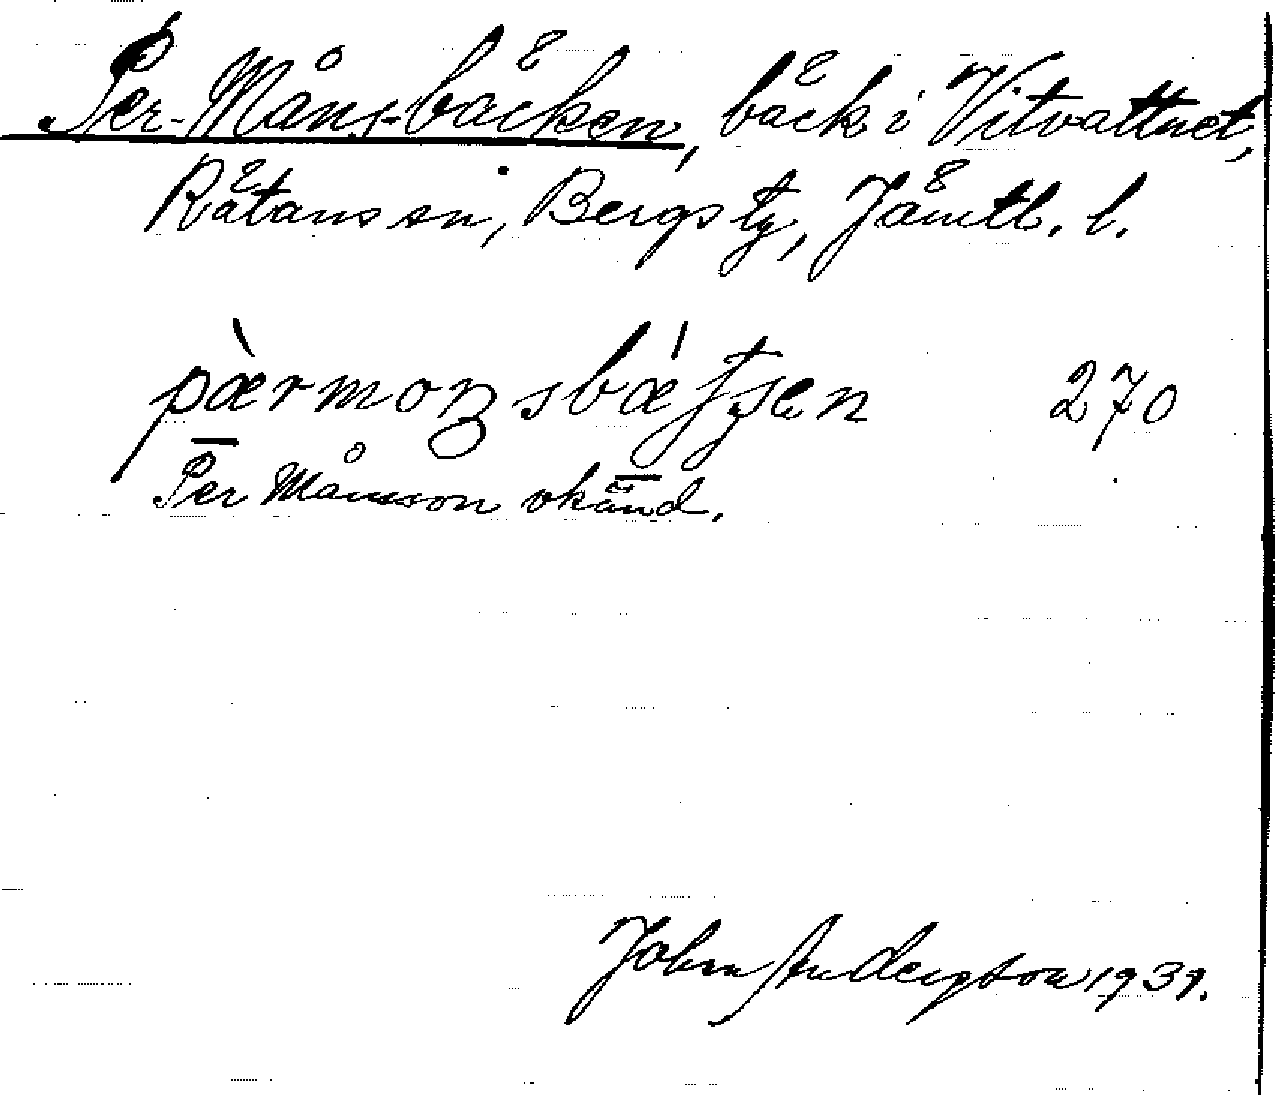 Per-Måns-bäcken, bäck i Vitvattnet,
Rätans sn, Bergs tg, Jämtl. l.
270
Per Månsson okänd.
John Andersson 1939.